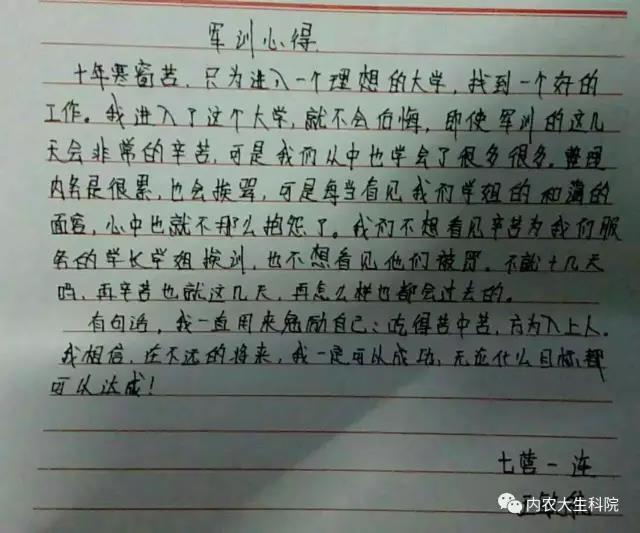 军训心得
十年寒窗苦，只为进入一个理想的大学，找到一个好的
工作。我进入了这个大学，就不会后悔，即使军训的这几
天会非常的辛苦，可是我们从中也学会了很多很多。整理
内务是很累，也会挨骂，可是每当看见我们学姐的和蔼的
面容，心中也就不那么抱怨了。我们不想看见辛苦为我们服
务的学长学姐挨训，也不想看见他们被骂。不就十几天
吗，再辛苦也就这几天，再怎么样也都会过去的。
有句话，我一直用来勉励自己：吃得苦中苦，方为人上人。
我相信，在不远的将来，我一定可以成功，无论什么目标，都
可以达成！
七营一连
内农大生科院